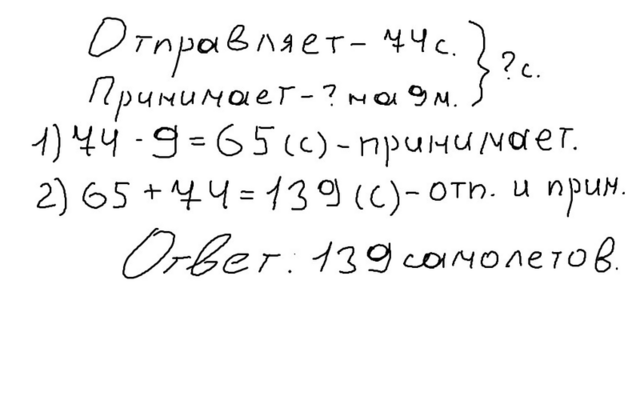 Отправляет - 74 с.
Принимает - ? на 9 м. } ? с.
1) 74 - 9 = 65 (с) - принимает.
2) 65 + 74 = 139 (с) - отп. и прим.
Ответ: 139 самолетов.